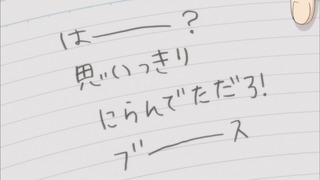 は───？
思いっきり
にらんでただろ！
ブ───ス